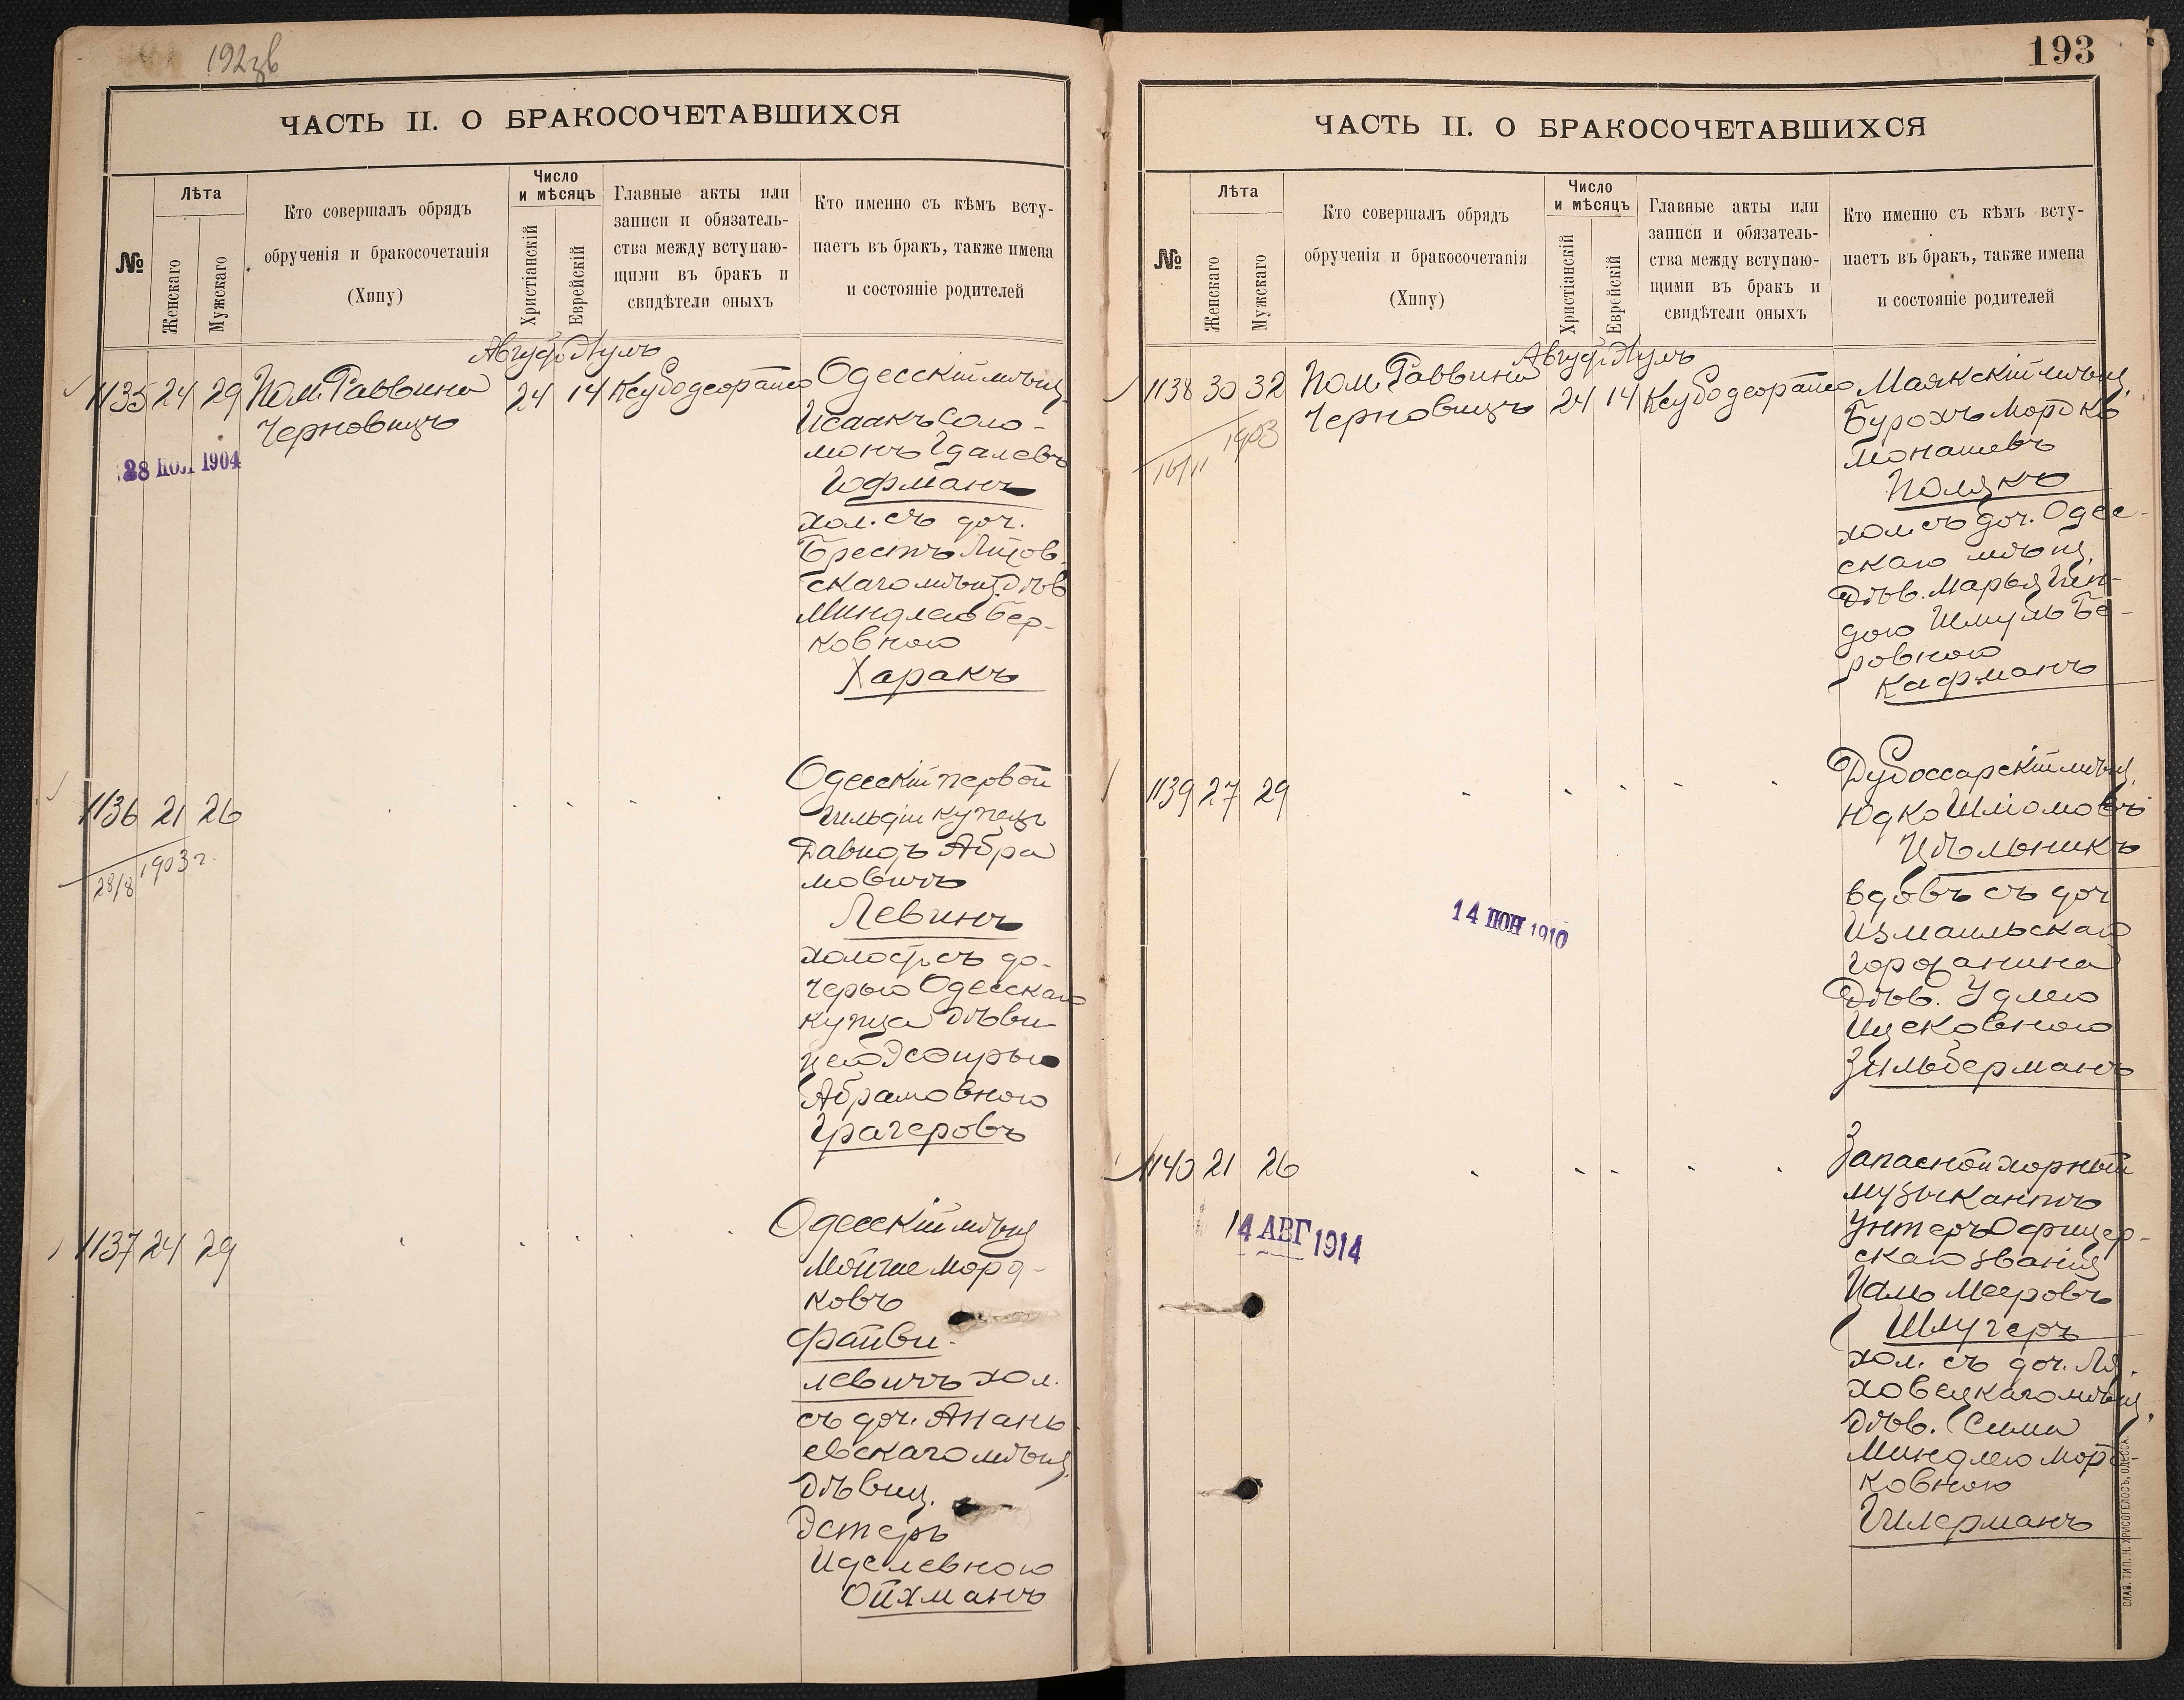 192 зв
ЧАСТЬ II. О БРАКОСОЧЕТАВШИХСЯ
№
Лѣта
Женскаго
Мужскаго
Кто совершалъ обрядъ
обрученія и бракосочетанія
(Хипу)
Число
и мѣсяцъ
Христіанскій
Еврейскій
Главные акты или
записи и обязатель-
ства между вступаю-
щими въ бракъ и
свидѣтели оныхъ
Кто именно съ кѣмъ всту-
паетъ въ бракъ, также имена
и состояніе родителей
Август. Элулъ
1135 24 29 Пом. Раввина 24 14
Черновицъ
28 1904
Одесскій мѣщ.
Исаакъ Соло-
монъ Гдалевъ
Гофманъ
хол. съ доч.
Брестъ Литов-
скаго мѣщ. дѣв
Миндлею Бер-
ковною
Харакъ
1136 21 26
28/8 1903 г.
Одесскій первой
гильдіи купецъ
Давидъ Абра
мовичъ
Левинъ
холост. съ до-
черью Одесскаго
купца дѣви-
цею Эсфирью
Абрамовною
Грагеровъ
1137 24 29
Одесскій мѣщ
Мойше Морд-
ковъ
Файви-
левичъ хол.
съ доч. Анань-
евскаго мѣщ.
дѣвиц.
Эстеръ
Иделевною
Ойхманъ
193
ЧАСТЬ II. О БРАКОСОЧЕТАВШИХСЯ
№
Лѣта
Женскаго
Мужскаго
Кто совершалъ обрядъ
обрученія и бракосочетанія
(Хипу)
Число
и мѣсяцъ
Христіанскій
Еврейскій
Главные акты или
записи и обязатель-
ства между вступаю-
щими въ бракъ и
свидѣтели оныхъ
Кто именно съ кѣмъ всту-
паетъ въ бракъ, также имена
и состояніе родителей
Август. Элулъ
1138 30 32 Пом. Раввина 24 14
Черновицъ
16/11 1903
Маякскій мѣщ.
Бурохъ Мордко
Монашевъ
Полякъ
хол. съ доч. Одес-
скаго мѣщ.
дѣв. Марья Гин-
дою Шмуль Бе-
ровною
Кафманъ
1139 27 29
14 1910
Дубоссарскій мѣщ.
Юдко Шлiомовъ
Цѣльникъ
вдовъ съ доч
Измаильскаго
горожанина
дѣв. Удлею
Ицковною
Зильберманъ
1140 21 26
14 АВГ 1914
Запасной хорный
музыкантъ
Унтеръ Офицер-
скаго званія
Цаль Мееровъ
Шлугеръ
хол. съ доч. Ля-
ховецкаго мѣщ.
дѣв. Сима
Миндлею Морд-
ковною
Гилерманъ
СЛАВ. ТИП. Н. ХРИСОГЕЛОСЪ, ОДЕССА.